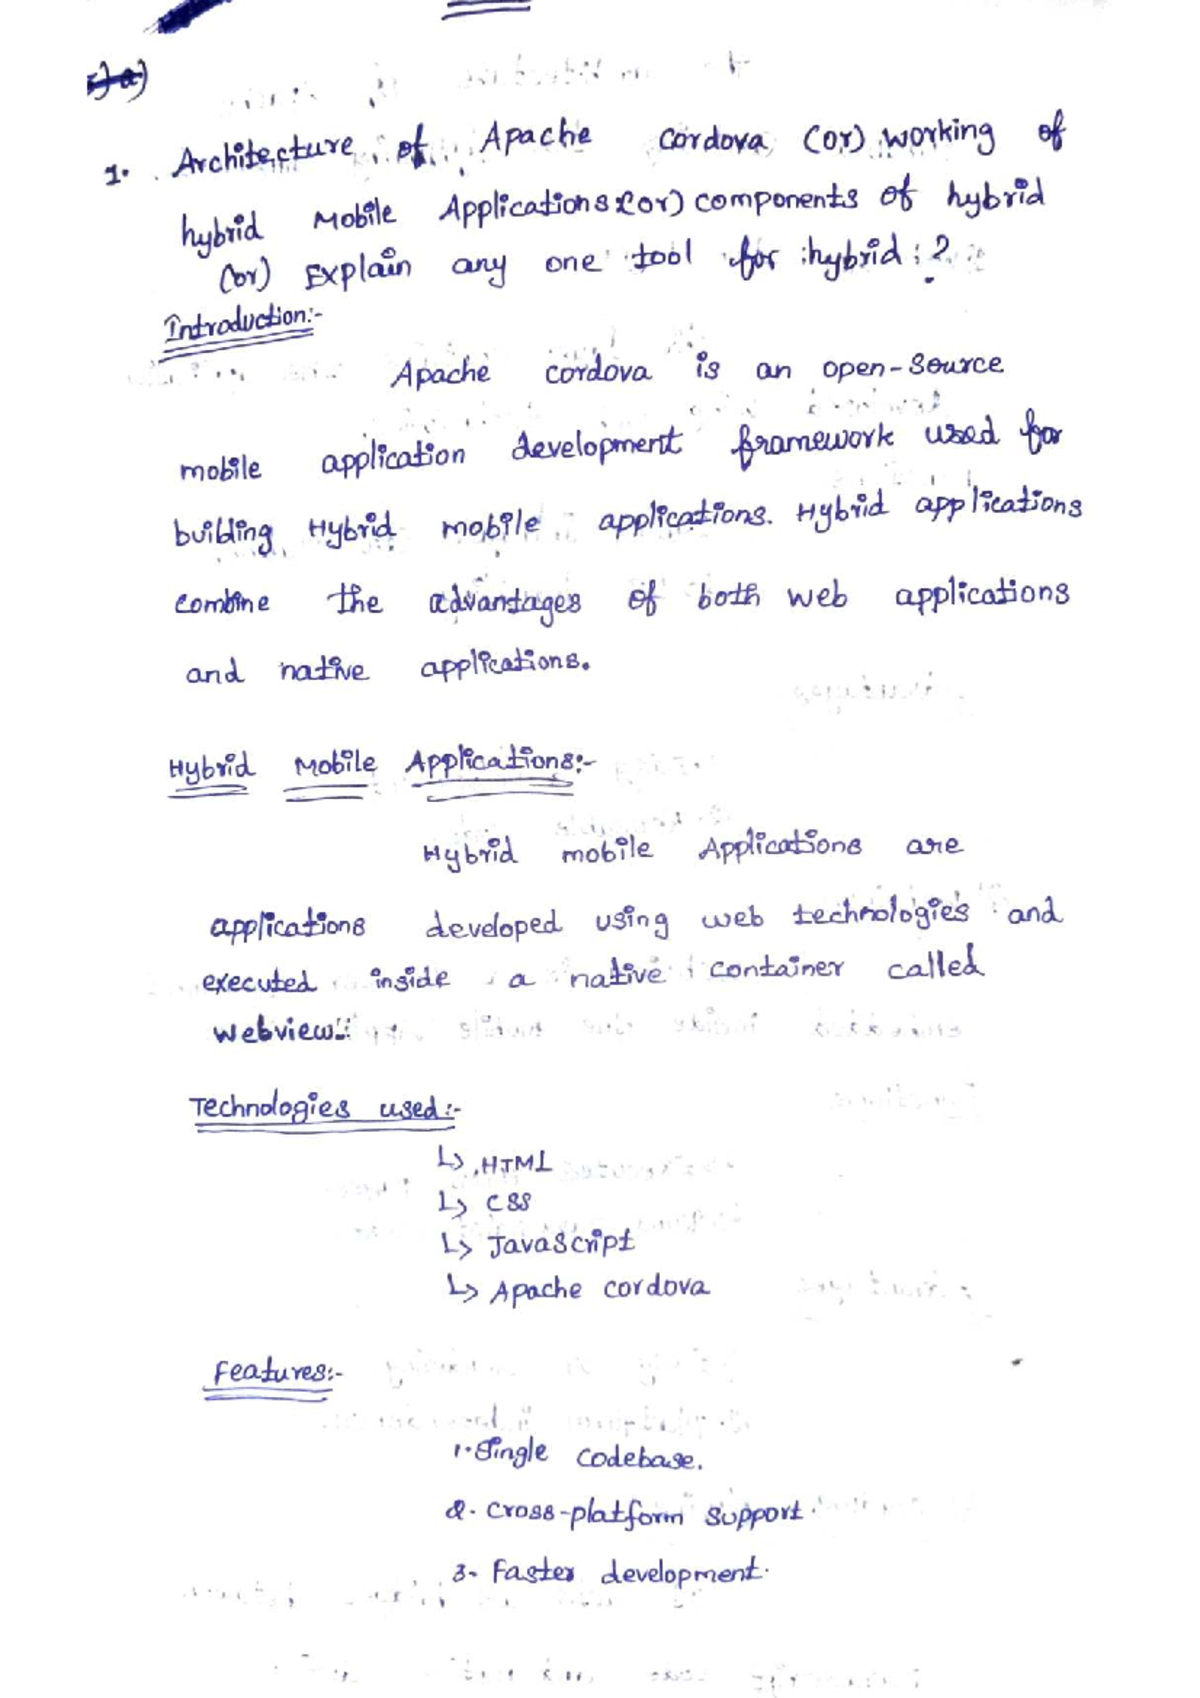 1. Architecture of Apache cordova (or) working of
hybrid Mobile Applications (or) components of hybrid
(or) Explain any one tool for hybrid ?
Introduction:-
Apache cordova is an open-source
mobile application development framework used for
building Hybrid mobile applications. Hybrid applications
combine the advantages of both web applications
and native applications.
Hybrid Mobile Applications:-
Hybrid mobile Applications are
applications developed using web technologies and
executed inside a native container called
webview.
Technologies used:-
↳ HTML
↳ CSS
↳ JavaScript
↳ Apache cordova
Features:-
1. Single codebase.
2. Cross-platform support.
3. Faster development.